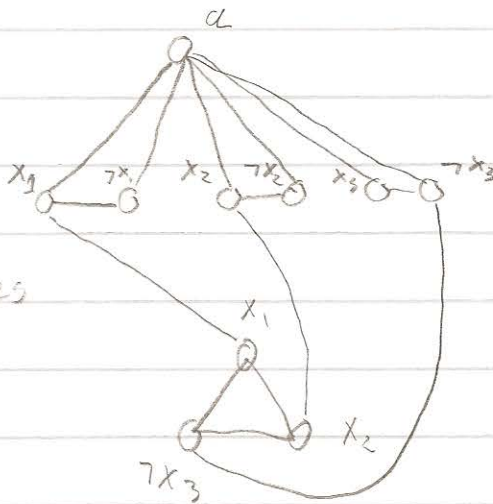 a
x₁ ¬x₁ x₂ ¬x₂ x₃ ¬x₃
x₁
¬x₃ x₂